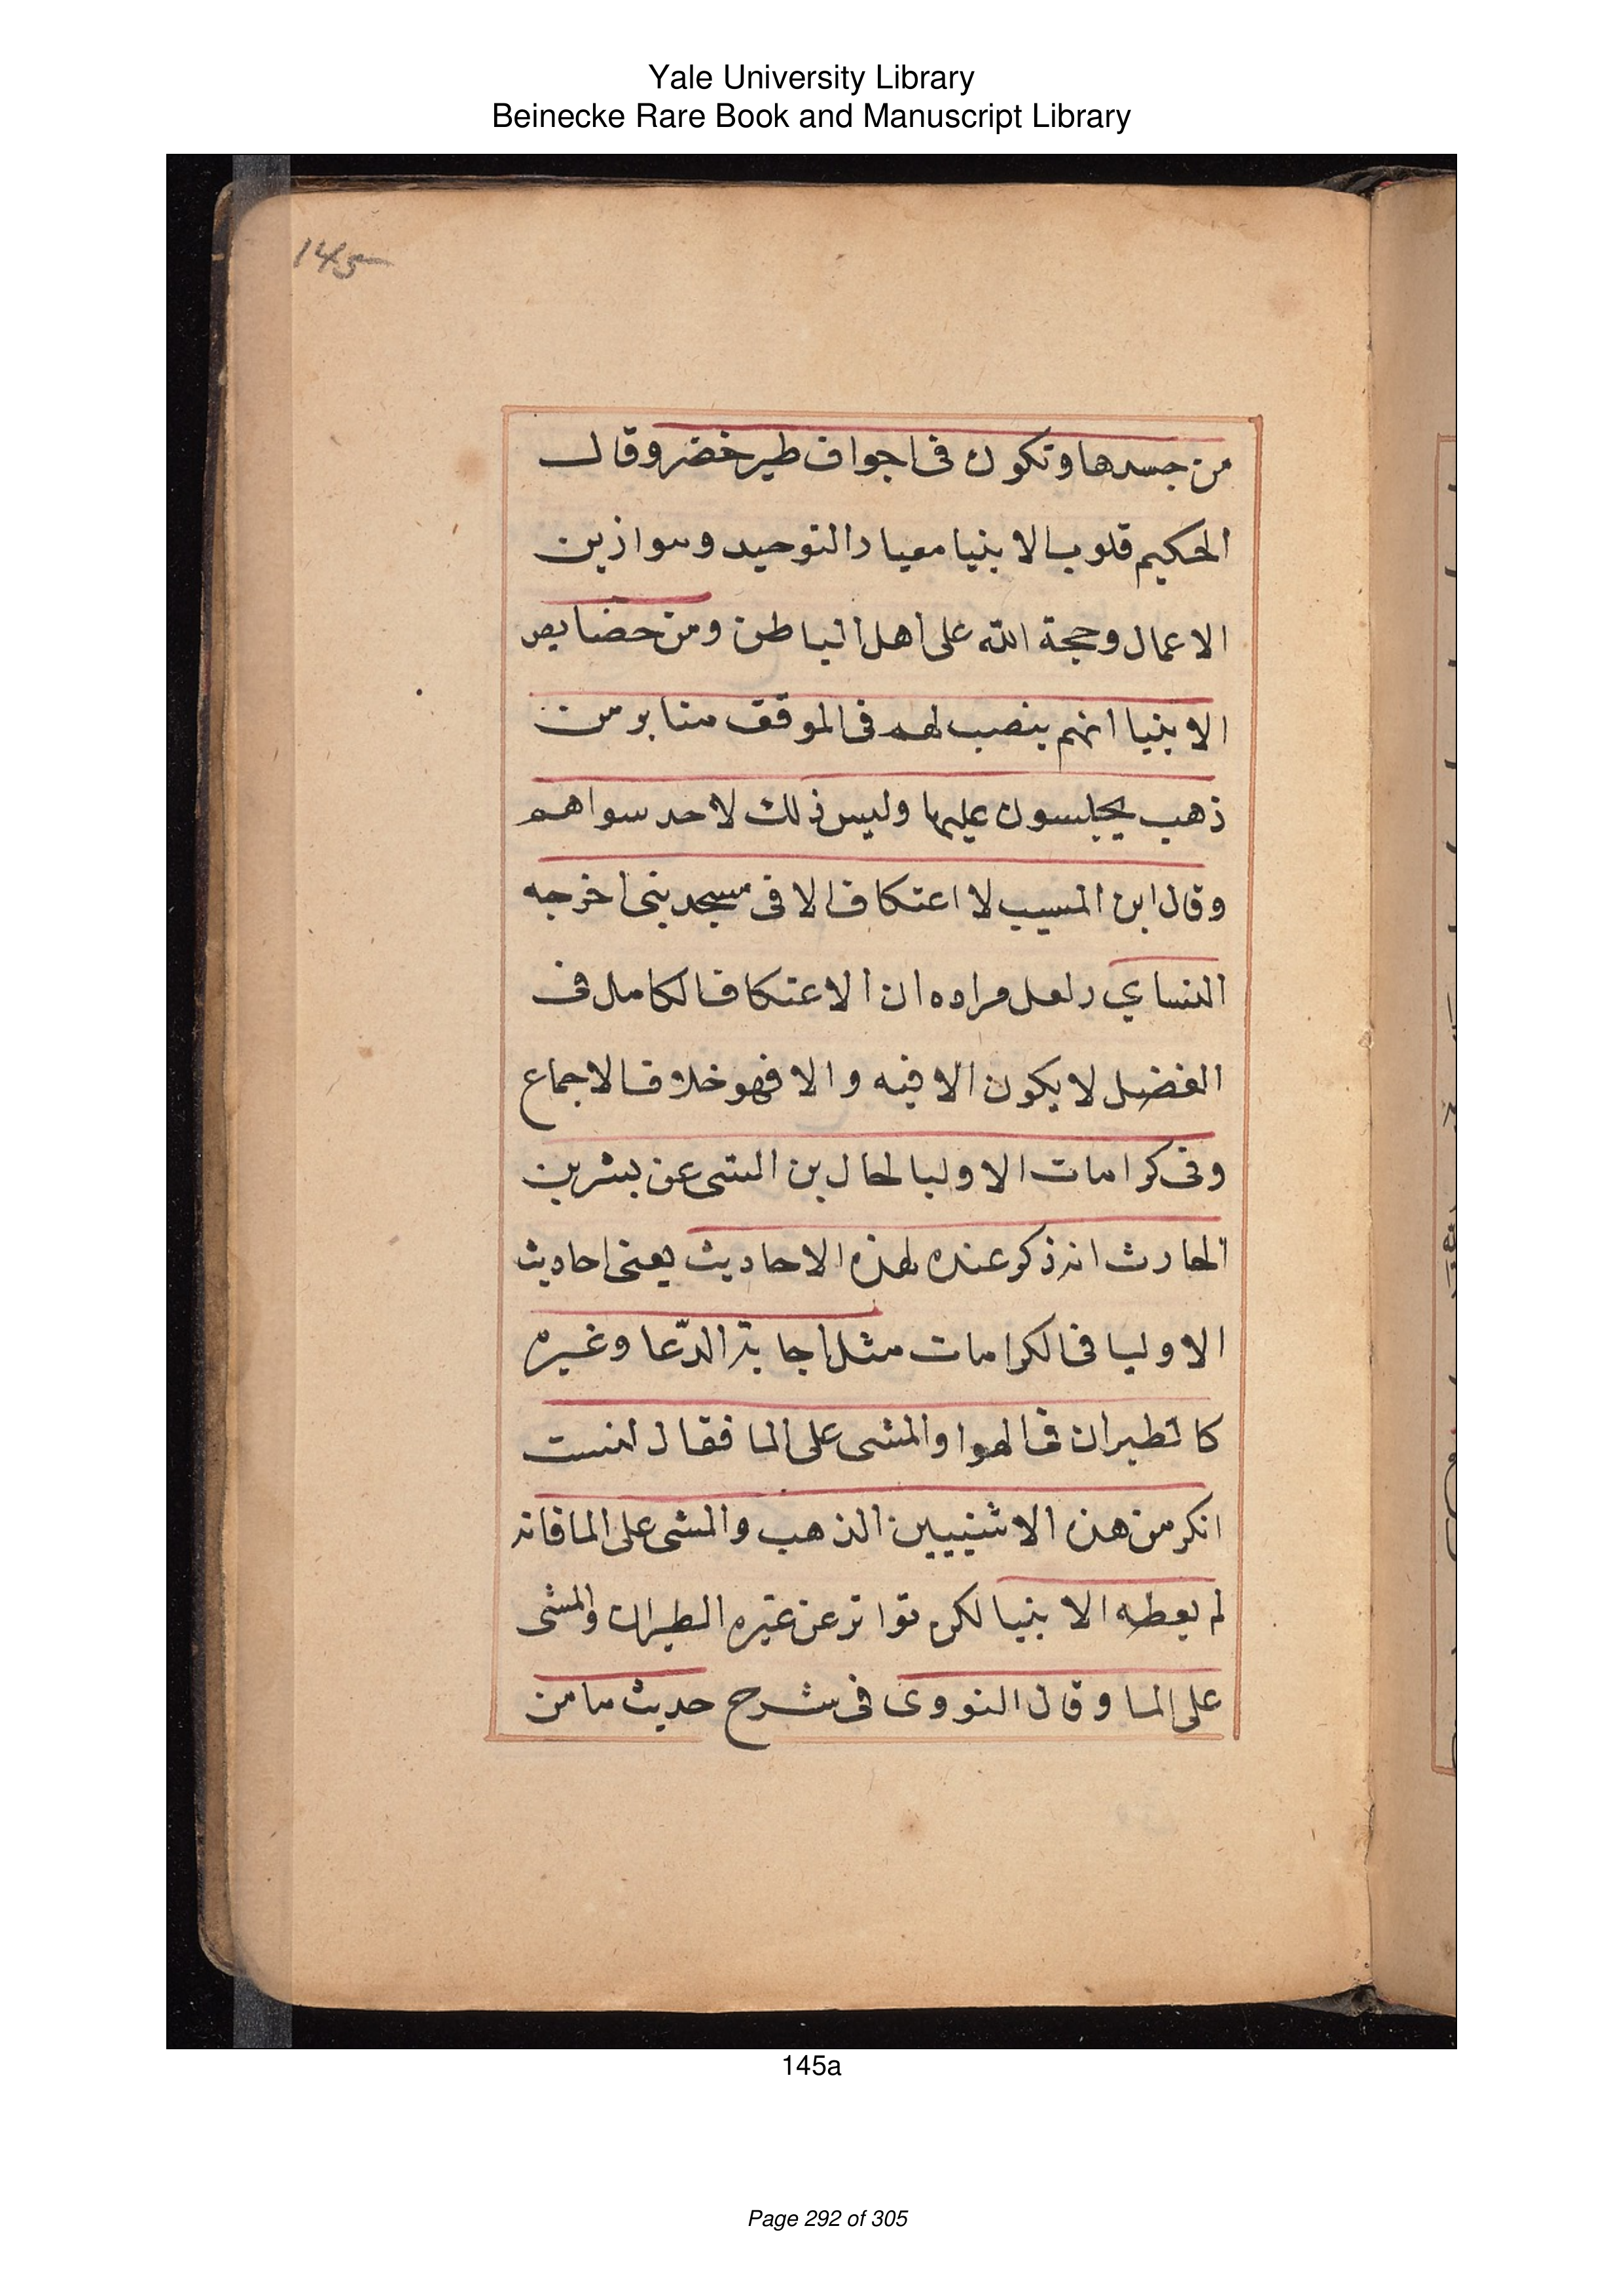 Yale University Library
Beinecke Rare Book and Manuscript Library
145
من جسدها وتكون فى اجواف طير خضر وقال
الحكيم قلوب الانبيا معيار التوحيد وموازين
الاعمال وحجة الله على اهل الباطن ومن خصايص
الانبيا انهم ينصب لهم فى الموقف منابر من
ذهب يجلسون عليها وليس ذلك لاحد سواهم
وقال ابن المسيب لا اعتكاف الا فى مسجد نبى اخرجه
النساي ولعل مراده ان الاعتكاف الكامل فى
الفضل لا يكون الا فيه والا فهو خلاف الاجماع
وفى كرامات الاوليا لحال بن السنى عن بشر بن
الحارث انه ذكر عنده هذه الاحاديث يعنى احاديث
الاوليا فى الكرامات مثل اجابة الدّعا وغيره
كالطيران فى الهوا والمشى على الما فقال لست
انكر من هذه الا شيئين الذهب والمشى على الما فانه
لم يعطه الا نبيا لكن تواتر عن غيره الطيران والمشى
على الما وقال النووى فى شرح حديث ما من
145a
Page 292 of 305